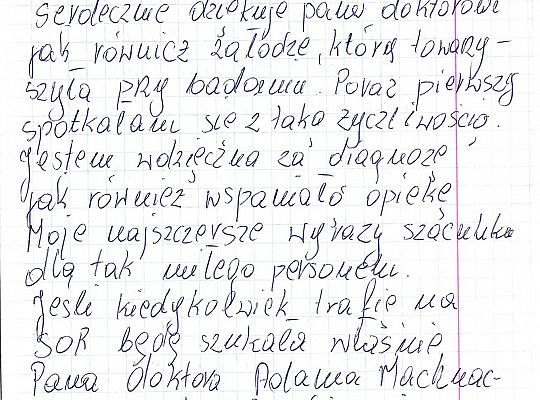 serdecznie dziękuje panu doktorowi
jak również załodze, która towarzy-
szyła przy badaniu. Poraz pierwszy
spotkałam się z taką życzliwością.
Jestem wdzięczna za diagnozę
jak również wspaniałą opiekę
Moje najszczersze wyrazy szacunku
dla tak miłego personelu.
Jeśli kiedykolwiek trafię na
SOR będę szukała właśnie
Pana doktora Adama Machnac-